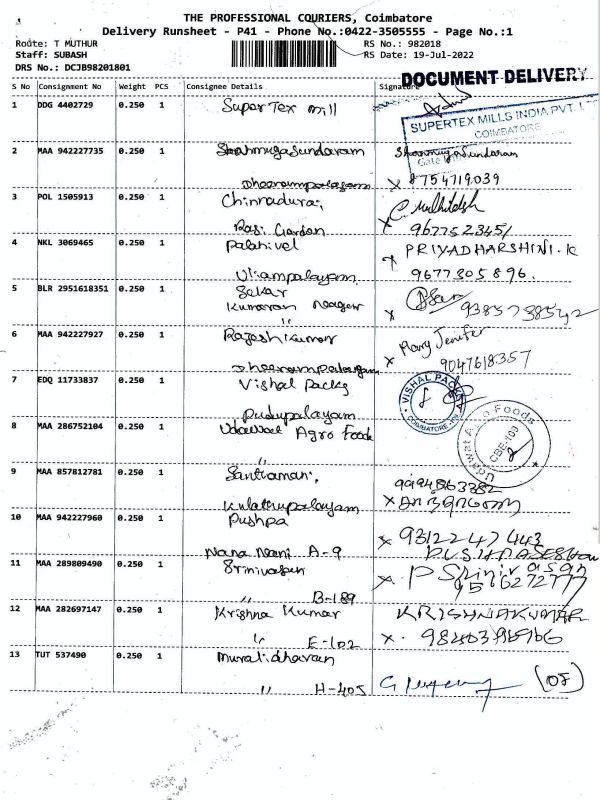 THE PROFESSIONAL COURIERS, Coimbatore
Delivery Runsheet - P41 - Phone No.:0422-3505555 - Page No.:1
Route: T MUTHUR RS No.: 982018
Staff: SUBASH RS Date: 19-Jul-2022
DRS No.: DCJB98201801
DOCUMENT DELIVERY
S No Consignment No Weight PCS Consignee Details Signature
1 DDG 4402729 0.250 1 Super Tex mill
SUPERTEX MILLS INDIA PVT. LT
COIMBATORE
2 MAA 942227735 0.250 1 Shanmugasundaram Shanmugasundaram
Gate
Dheerampalayam x 8754719039
3 POL 1505913 0.250 1 Chinnadurai,
Rasi Garden x 9677523451
4 NKL 3069465 0.250 1 Palanivel PRIYADHARSHINI.K
Uliampalayam x 9677305896.
5 BLR 2951618351 0.250 1 Sekar
Kumaran Nagar x 9385738542
6 MAA 942227927 0.250 1 Rajesh Kumar Mary Jenifer
Dheerampalayam x 9047618357
7 EDQ 11733837 0.250 1 Vishal Packs
VISHAL PACKS
COIMBATORE
Pudupalayam
8 MAA 286752104 0.250 1 Udawat Agro Foods
Udawat Agro Foods
CBE-103
9 MAA 857812781 0.250 1 Santhamani, 9994863382
Kulathupalayam x
10 MAA 942227960 0.250 1 Pushpa x 9312247443
Nana Nani A-9
11 MAA 289809490 0.250 1 Srinivasan x P Srinivasan
" B-189 9566272777
12 MAA 282697147 0.250 1 Krishna Kumar KRISHNAKUMAR
" E-102 x.
13 TUT 537490 0.250 1 Muralidharan
" H-405